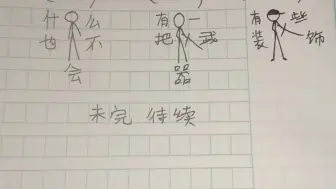 什么
也不
会
有一
把武
器
有些
装饰
未完 待续